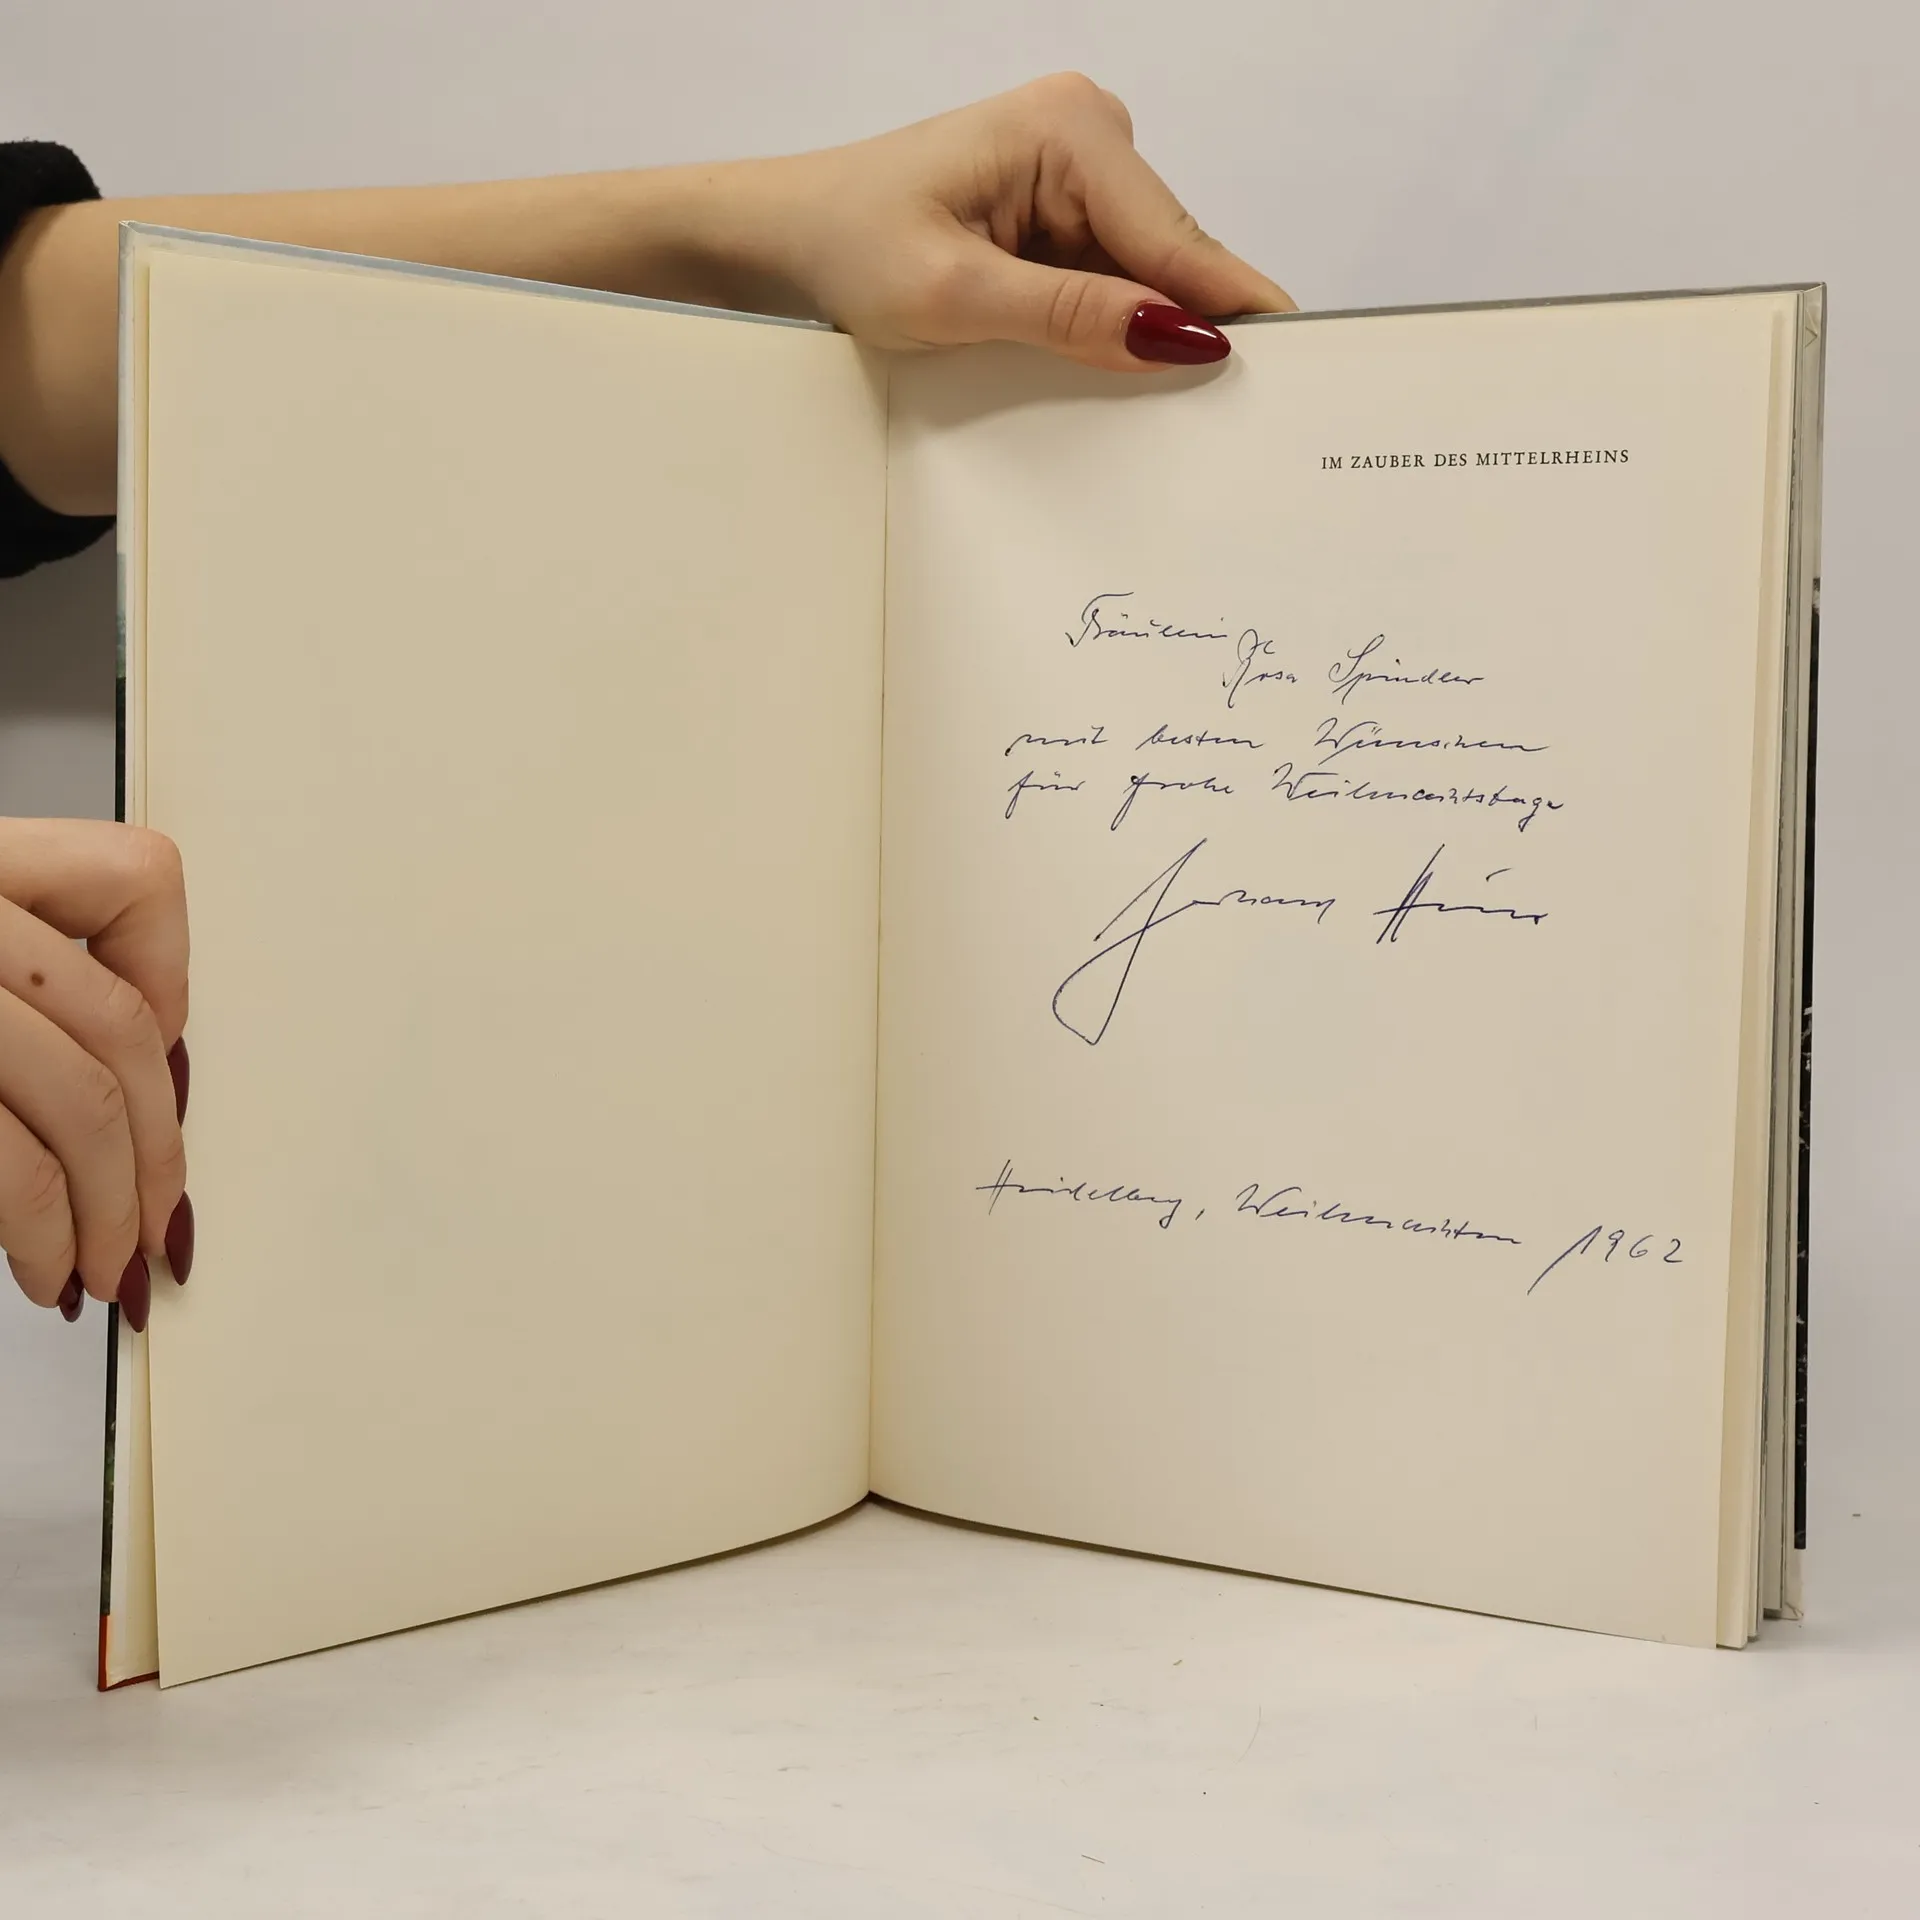 IM ZAUBER DES MITTELRHEINS
Fräulein
Rosa Spindler
mit besten Wünschen
für frohe Weihnachtstage
Heidelberg, Weihnachten 1962